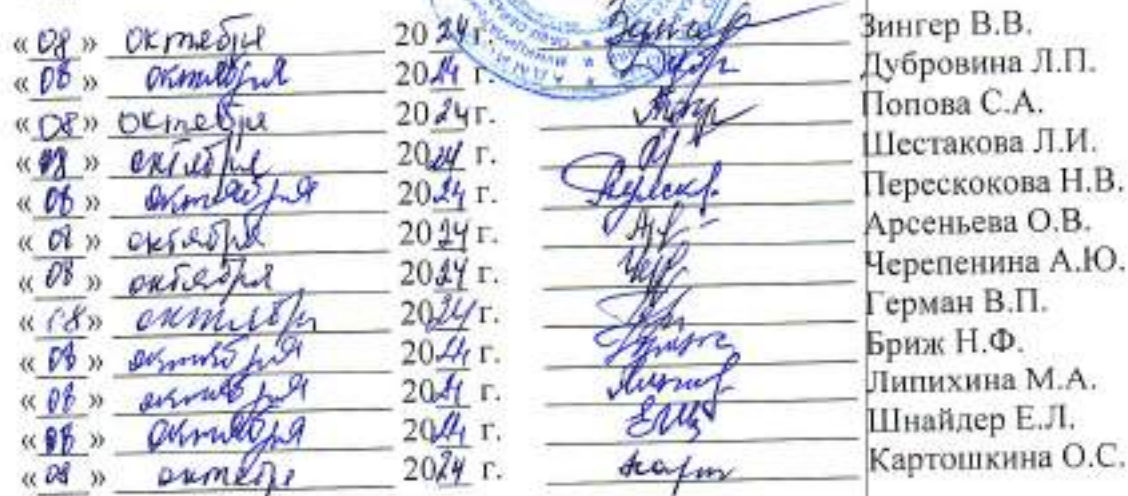 « 08 » октября 2024 г. Зингер В.В.
« 08 » октября 2024 г. Дубровина Л.П.
« 08 » октября 2024 г. Попова С.А.
« 08 » октября 2024 г. Шестакова Л.И.
« 08 » октября 2024 г. Перескокова Н.В.
« 08 » октября 2024 г. Арсеньева О.В.
« 08 » октября 2024 г. Черепенина А.Ю.
« 08 » октября 2024 г. Герман В.П.
« 08 » октября 2024 г. Бриж Н.Ф.
« 08 » октября 2024 г. Липихина М.А.
« 08 » октября 2024 г. Шнайдер Е.Л.
« 08 » октября 2024 г. Картошкина О.С.